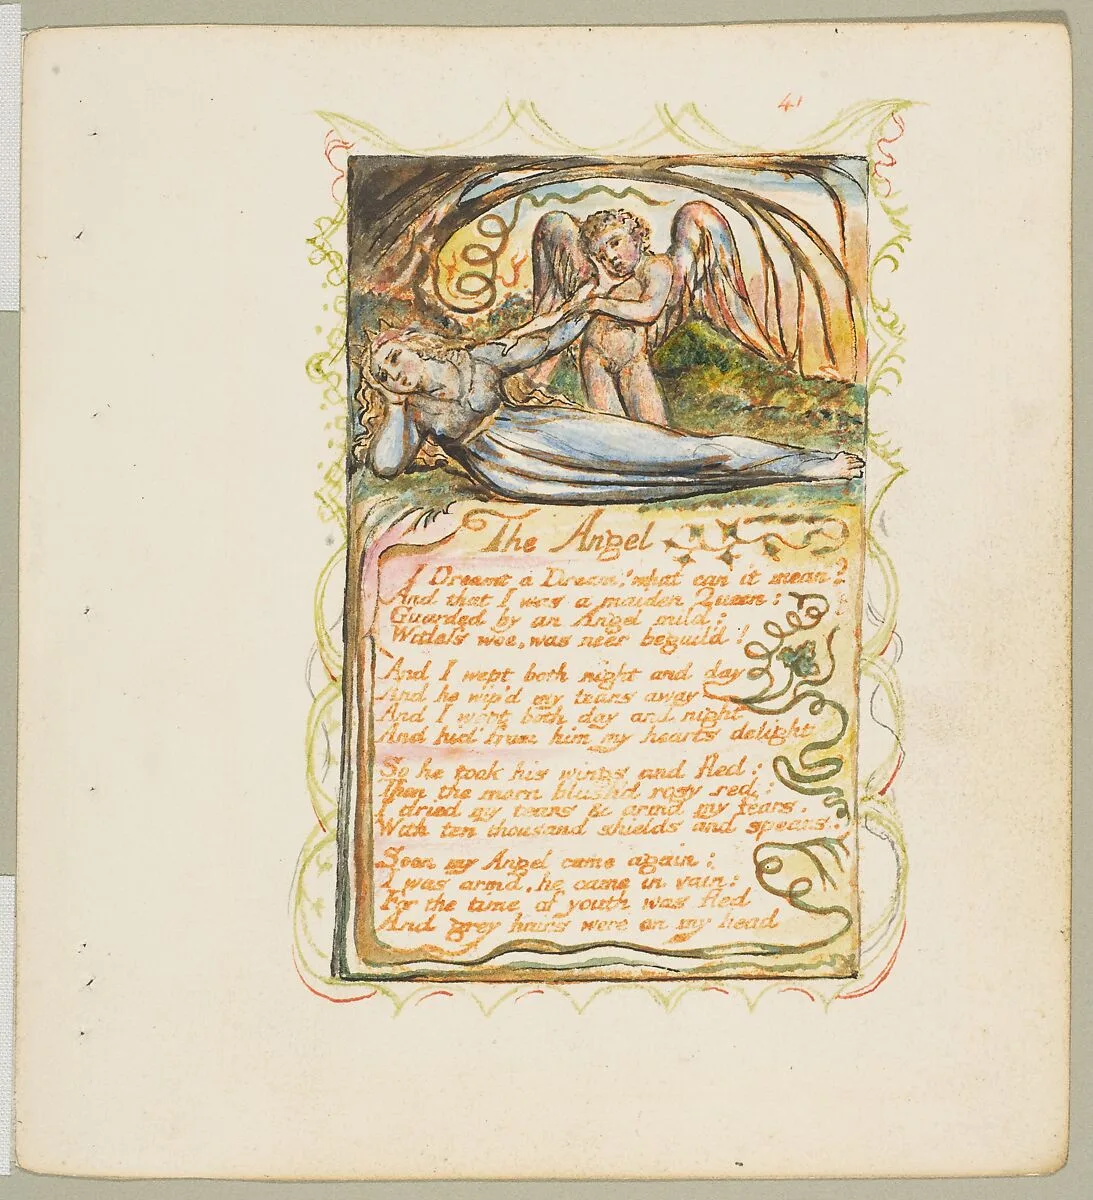 41
The Angel
I Dreamt a Dream! what can it mean?
And that I was a maiden Queen:
Guarded by an Angel mild;
Witless woe, was neer beguil'd!
And I wept both night and day
And he wip'd my tears away
And I wept both day and night
And hid from him my hearts delight
So he took his wings and fled:
Then the morn blush'd rosy red:
I dried my tears & armd my fears,
With ten thousand shields and spears.
Soon my Angel came again:
I was arm'd, he came in vain:
For the time of youth was fled
And grey hairs were on my head